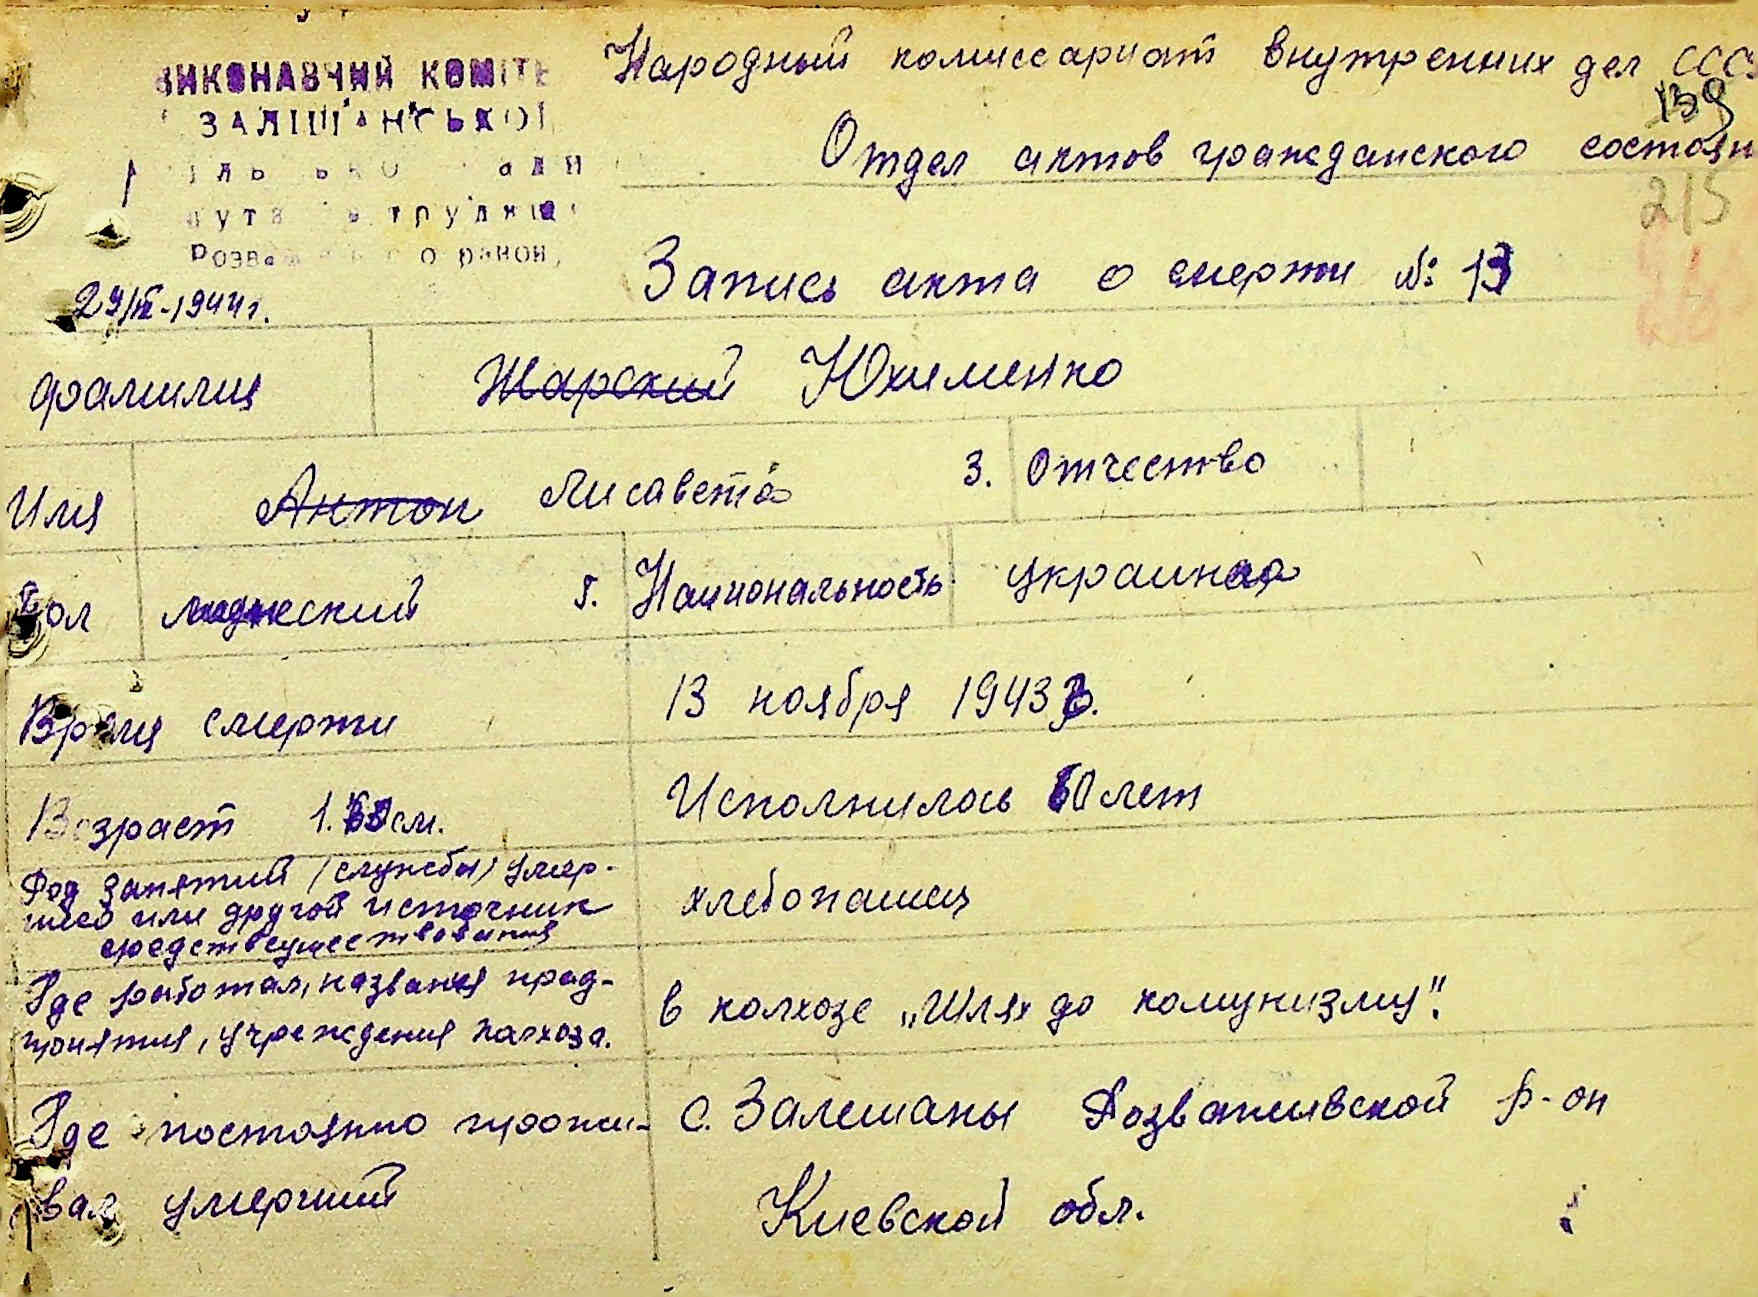 ВИКОНАВЧИЙ КОМІТЕ
Народный комиссариат внутренних дел СССР
139
ЗАЛІШАНСЬКОЇ
Отдел актов гражданского состоян
215
Запись акта о смерти № 13
29/IV-1944г.
Фамилия Жарский Юхименко
Имя Антон Лисавета 3. Отчество
Пол 5. Национальность украинка
Время смерти 13 ноября 1943
Возраст Исполнилось 60 лет
Род занятий (службы) умер-
шего или другой источник
средств существования хлебопашец
Где работал, названия пред-
приятия, учреждения колхоза. в колхозе „Шлях до комунизму".
Где постоянно прожи-
вал умерший
с. Залешаны Розваживской р-он
Киевской обл.